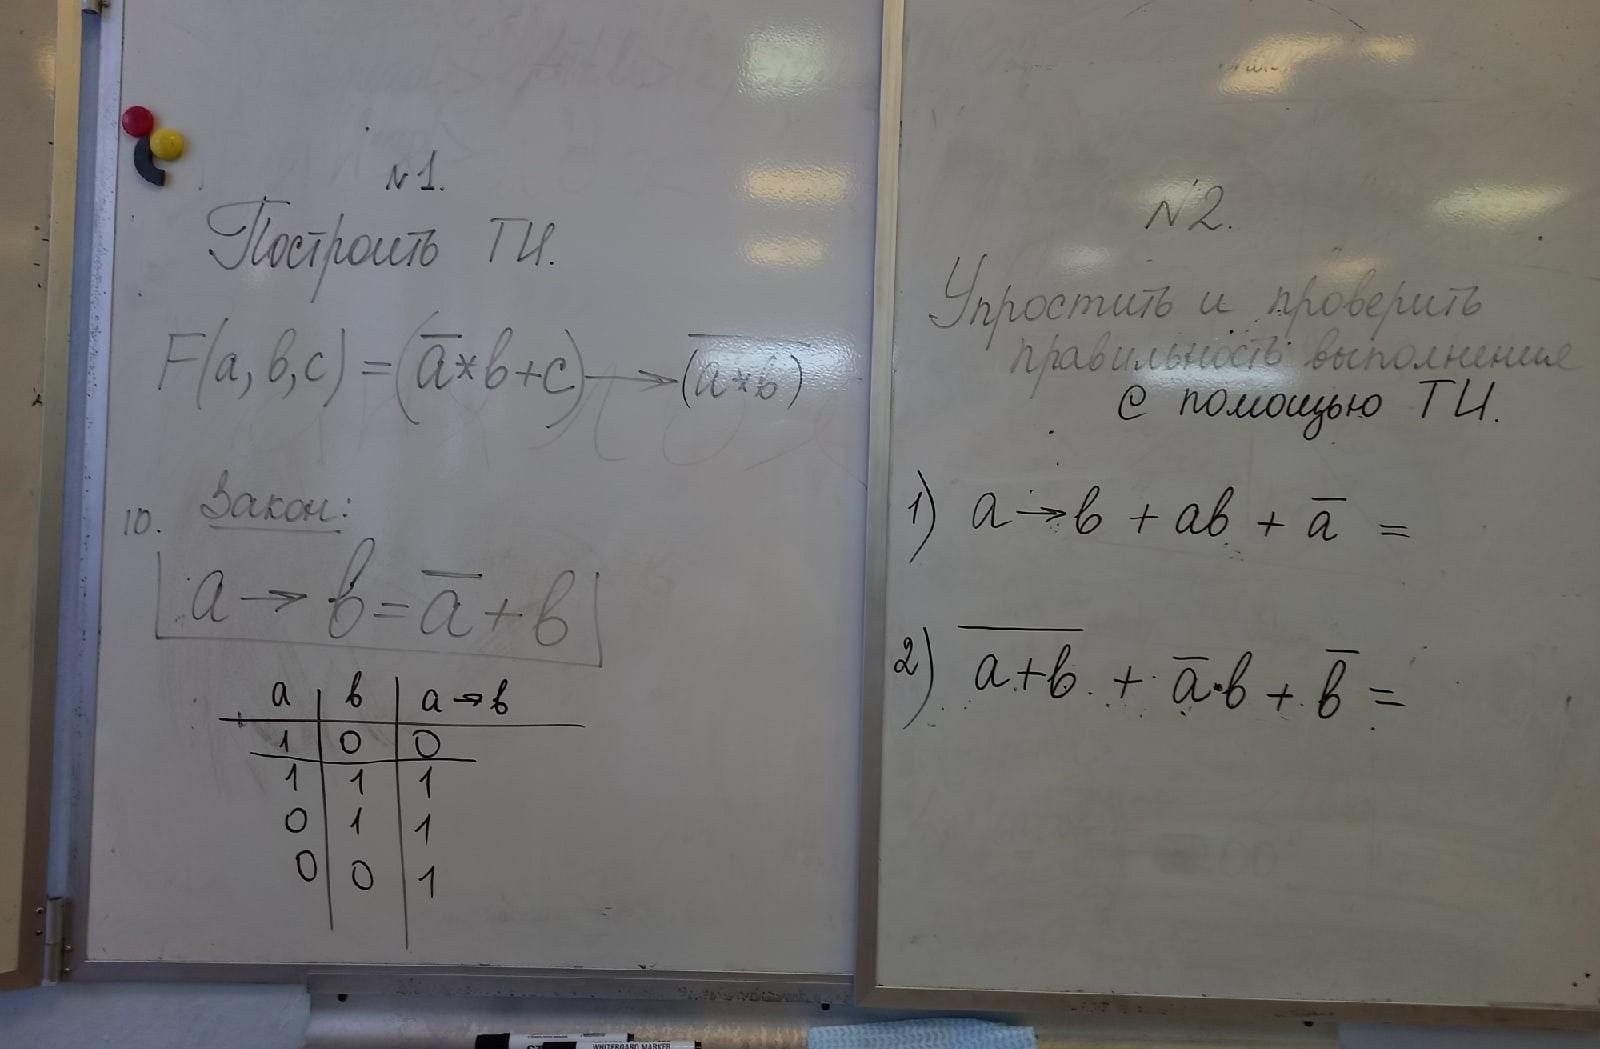 №1.
Построить ТИ.
F(a, b, c) = (a̅*b+c) → (a̅*̅b̅)
10. Закон:
a → b = a̅ + b
a b a→b
1 0 0
1 1 1
0 1 1
0 0 1
№2.
Упростить и проверить
правильность выполнения
с помощью ТИ.
1) a→b + ab + a̅ =
2) a̅+̅b̅ + a̅·b + b̅ =
WHITEBOARD MARKER